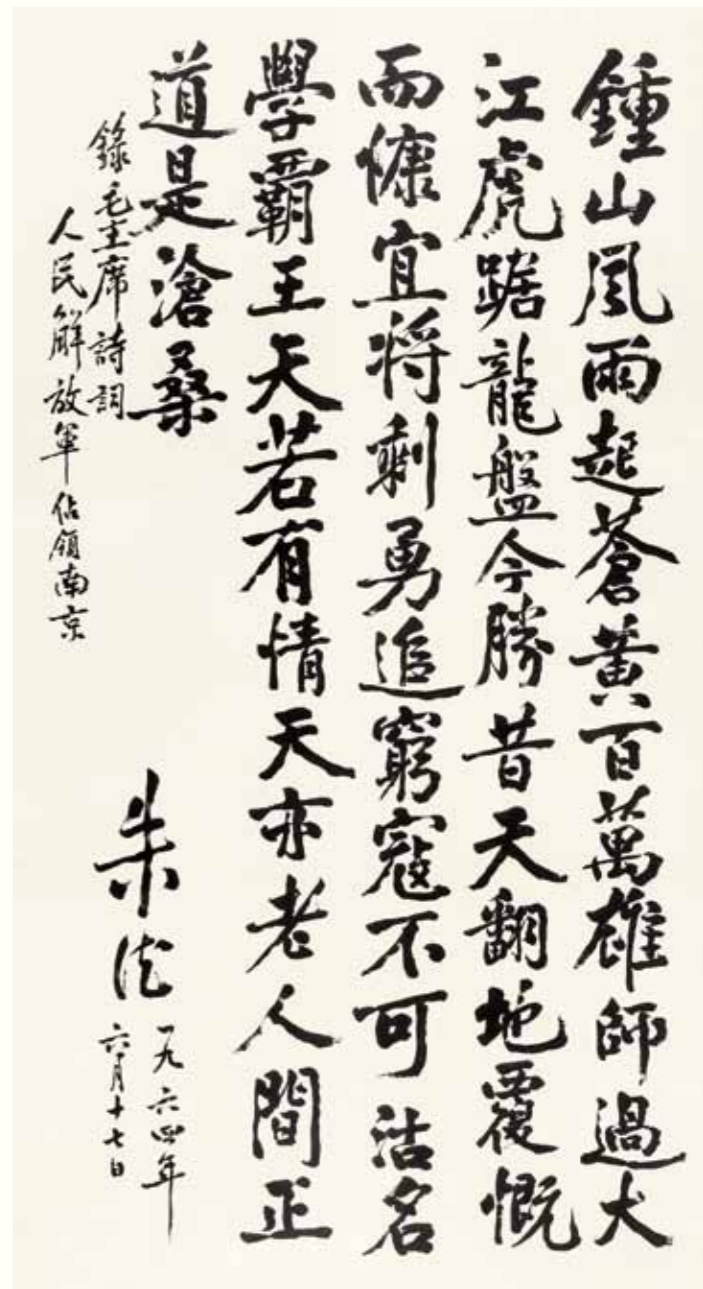 鍾山風雨起蒼黃百萬雄師過大
江虎踞龍盤今勝昔天翻地覆慨
而慷宜將剩勇追窮寇不可沽名
學霸王天若有情天亦老人間正
道是滄桑
錄毛主席詩詞
人民解放軍佔領南京
朱德
一九六四年
六月十七日